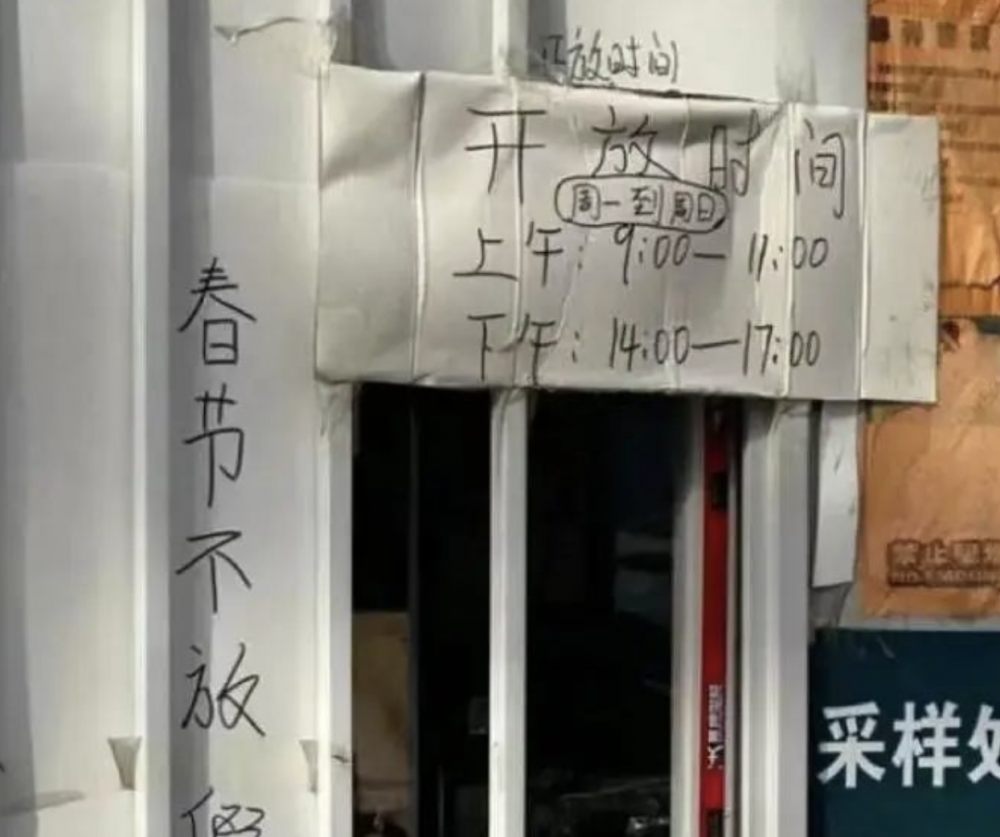 放时间
开放时间
周一至周日
上午：9:00—11:00
下午：14:00—17:00
春节不放假
禁止吸
NO SMOKING
采样处